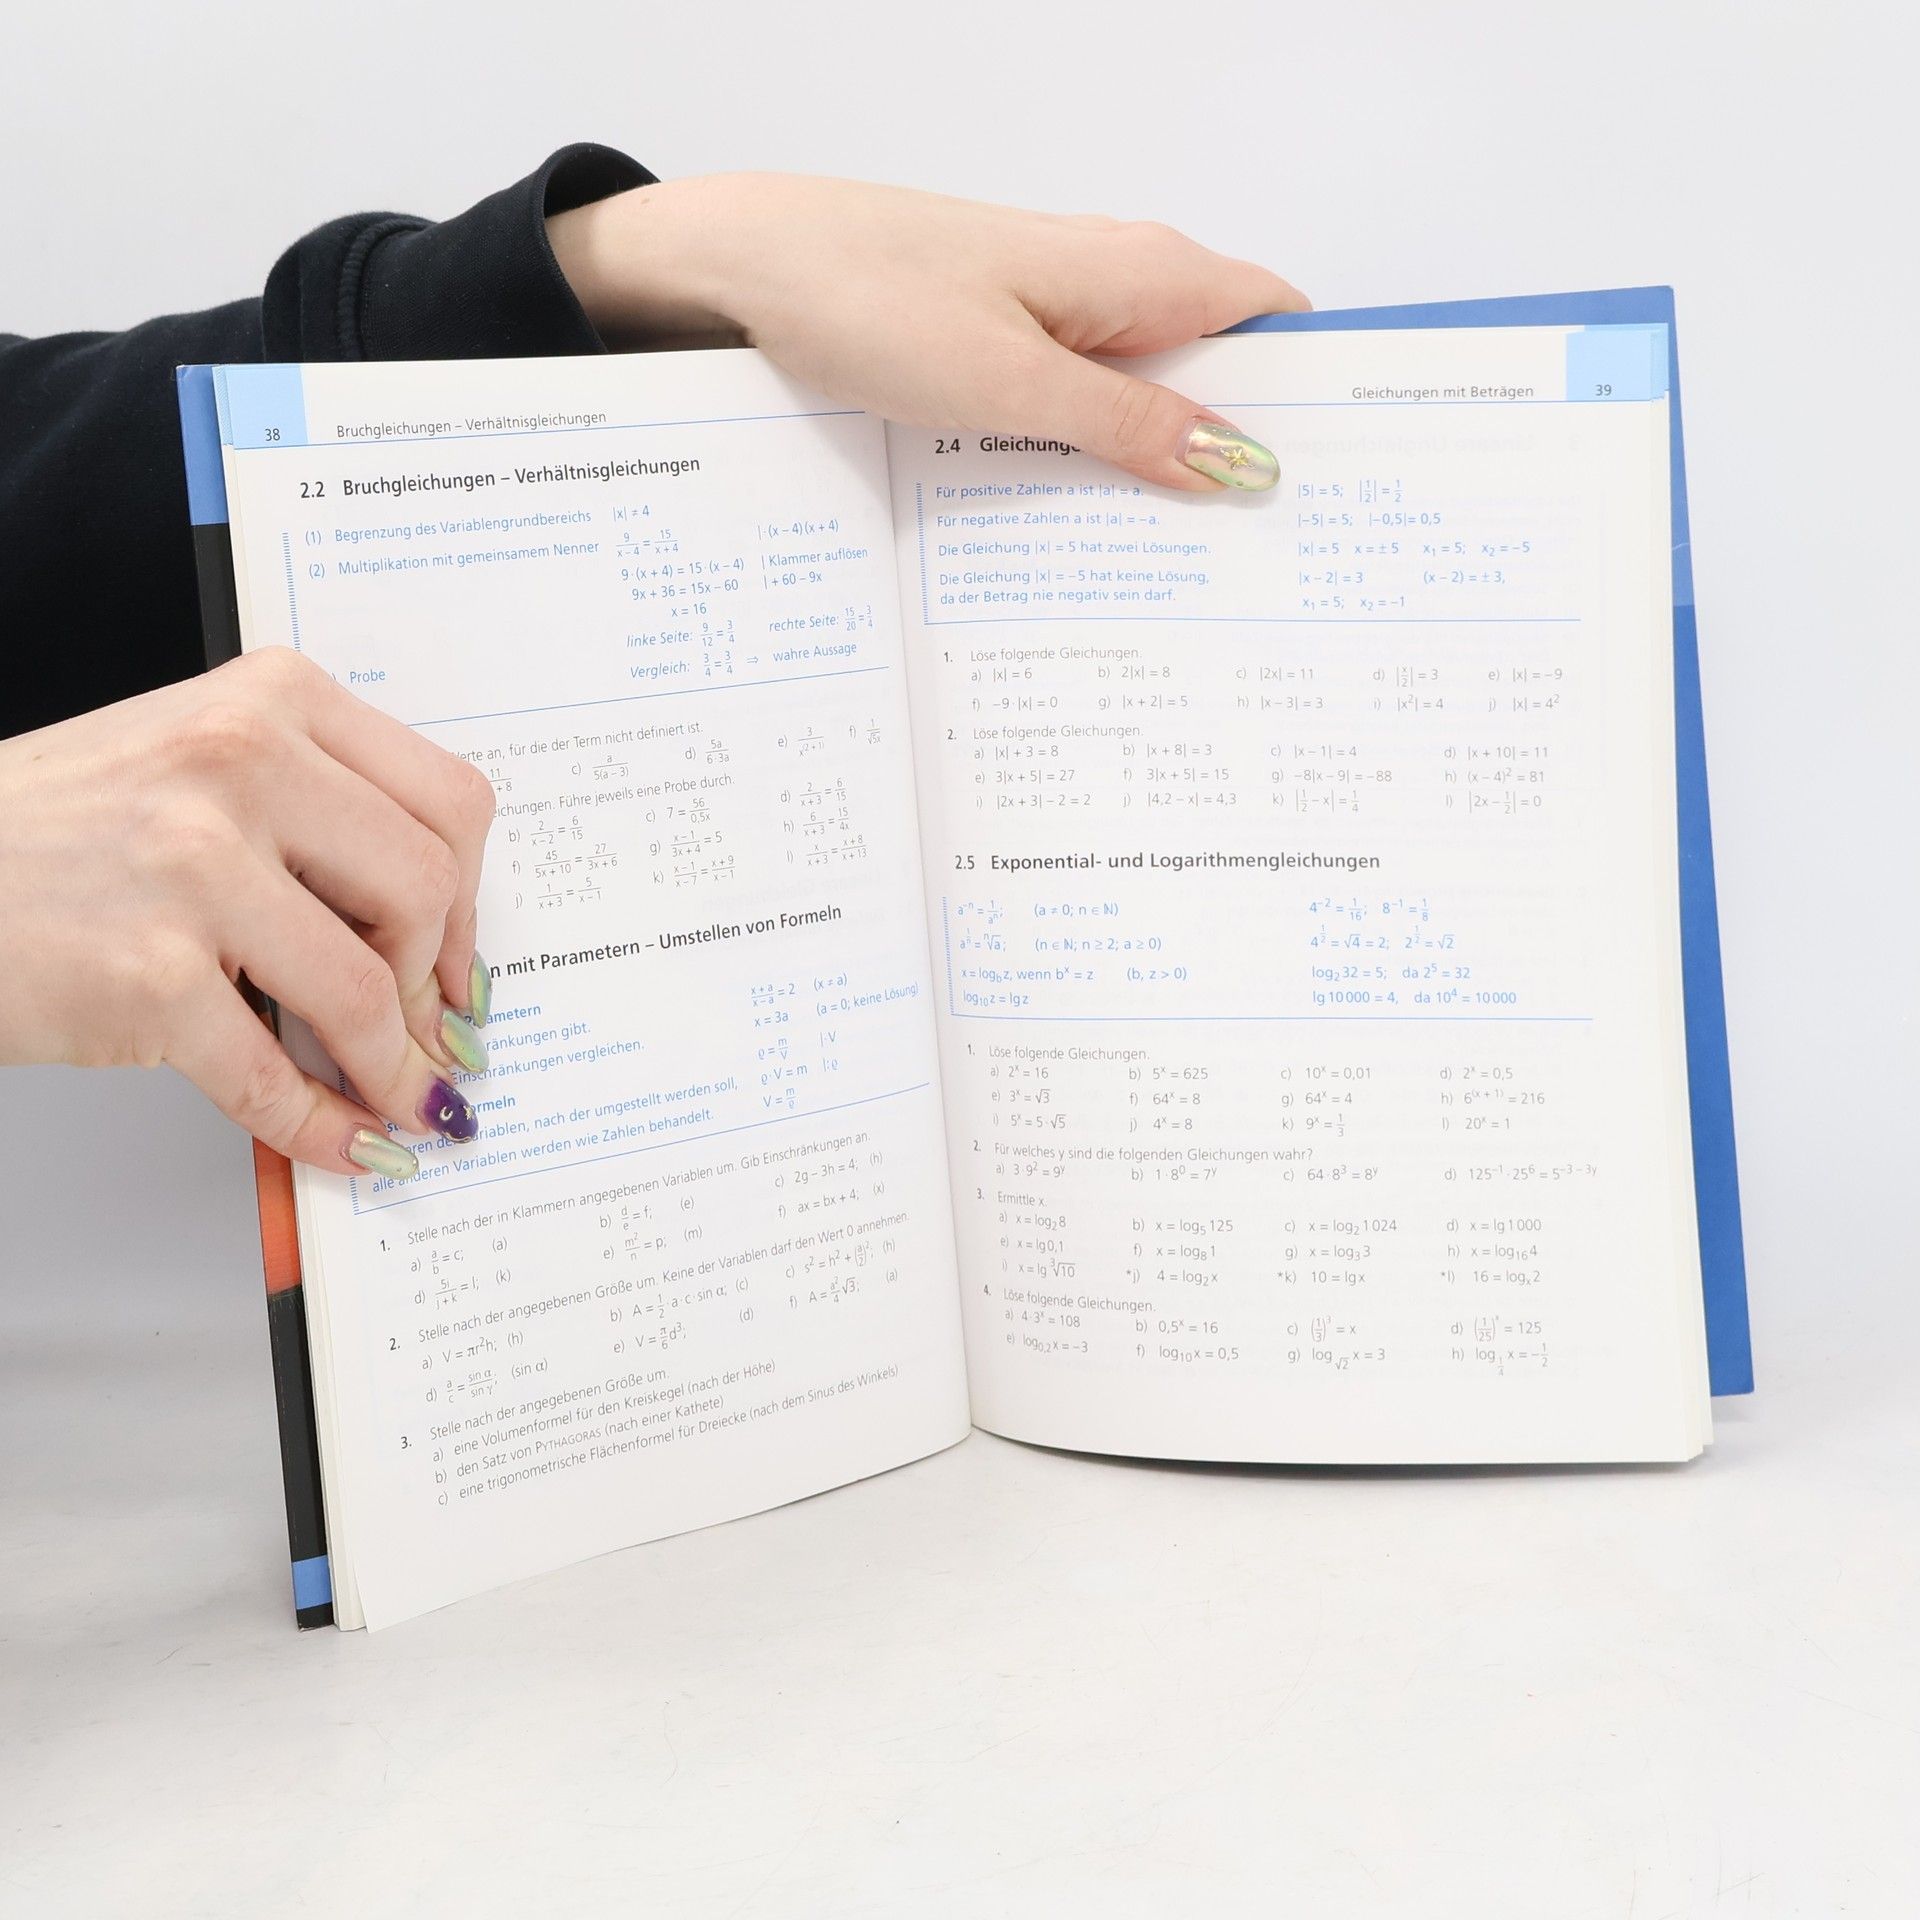 38 Bruchgleichungen – Verhältnisgleichungen
2.2 Bruchgleichungen – Verhältnisgleichungen
(1) Begrenzung des Variablengrundbereichs |x| ≠ 4
(2) Multiplikation mit gemeinsamem Nenner 9/(x – 4) = 15/(x + 4) | · (x – 4)(x + 4)
9 · (x + 4) = 15 · (x – 4) | Klammer auflösen
9x + 36 = 15x – 60 | + 60 – 9x
x = 16
linke Seite: 9/12 = 3/4 rechte Seite: 15/20 = 3/4
) Probe Vergleich: 3/4 = 3/4 ⇒ wahre Aussage
an, für die der Term nicht definiert ist.
11/ + 8 c) a/5(a – 3) d) 5a/6·3a e) f) 1/√5x
Führe jeweils eine Probe durch.
b) 2/(x – 2) = 6/15 c) 7 = 56/0,5x d) 2/(x + 3) = 6/15
f) 45/(5x + 10) = 27/(3x + 6) g) (x – 1)/(3x + 4) = 5 h) 6/(x + 3) = 15/4x
j) 1/(x + 3) = 5/(x – 1) k) (x – 1)/(x – 7) = (x + 9)/(x – 1) l) x/(x + 3) = (x + 8)/(x + 13)
n mit Parametern – Umstellen von Formeln
ametern (x + a)/(x – a) = 2 (x ≠ a)
ränkungen gibt. x = 3a (a = 0; keine Lösung)
Einschränkungen vergleichen. ϱ = m/V | · V
rmeln ϱ · V = m | : ϱ
riablen, nach der umgestellt werden soll, V = m/ϱ
alle anderen Variablen werden wie Zahlen behandelt.
1. Stelle nach der in Klammern angegebenen Variablen um. Gib Einschränkungen an.
a) a/b = c; (a) b) d/e = f; (e) c) 2g – 3h = 4; (h)
d) 5i/(j + k) = l; (k) e) m²/n = p; (m) f) ax = bx + 4; (x)
2. Stelle nach der angegebenen Größe um. Keine der Variablen darf den Wert 0 annehmen.
a) V = πr²h; (h) b) A = 1/2 · a · c · sin α; (c) c) s² = h² + (a/2)²; (h)
d) a/c = sin α/sin γ; (sin α) e) V = π/6 d³; (d) f) A = a²/4 √3; (a)
3. Stelle nach der angegebenen Größe um.
a) eine Volumenformel für den Kreiskegel (nach der Höhe)
b) den Satz von PYTHAGORAS (nach einer Kathete)
c) eine trigonometrische Flächenformel für Dreiecke (nach dem Sinus des Winkels)
Gleichungen mit Beträgen 39
2.4 Gleichung
Für positive Zahlen a ist |a| = a. |5| = 5; |1/2| = 1/2
Für negative Zahlen a ist |a| = –a. |–5| = 5; |–0,5| = 0,5
Die Gleichung |x| = 5 hat zwei Lösungen. |x| = 5 x = ± 5 x₁ = 5; x₂ = –5
Die Gleichung |x| = –5 hat keine Lösung, |x – 2| = 3 (x – 2) = ± 3,
da der Betrag nie negativ sein darf. x₁ = 5; x₂ = –1
1. Löse folgende Gleichungen.
a) |x| = 6 b) 2|x| = 8 c) |2x| = 11 d) |x/2| = 3 e) |x| = –9
f) –9 · |x| = 0 g) |x + 2| = 5 h) |x – 3| = 3 i) |x²| = 4 j) |x| = 4²
2. Löse folgende Gleichungen.
a) |x| + 3 = 8 b) |x + 8| = 3 c) |x – 1| = 4 d) |x + 10| = 11
e) 3|x + 5| = 27 f) 3|x + 5| = 15 g) –8|x – 9| = –88 h) (x – 4)² = 81
i) |2x + 3| – 2 = 2 j) |4,2 – x| = 4,3 k) |1/2 – x| = 1/4 l) |2x – 1/2| = 0
2.5 Exponential- und Logarithmengleichungen
a⁻ⁿ = 1/aⁿ; (a ≠ 0; n ∈ ℕ) 4⁻² = 1/16; 8⁻¹ = 1/8
a^(1/n) = ⁿ√a; (n ∈ ℕ; n ≥ 2; a ≥ 0) 4^(1/2) = √4 = 2; 2^(1/2) = √2
x = log_b z, wenn bˣ = z (b, z > 0) log₂ 32 = 5; da 2⁵ = 32
log₁₀ z = lg z lg 10 000 = 4, da 10⁴ = 10 000
1. Löse folgende Gleichungen.
a) 2ˣ = 16 b) 5ˣ = 625 c) 10ˣ = 0,01 d) 2ˣ = 0,5
e) 3ˣ = √3 f) 64ˣ = 8 g) 64ˣ = 4 h) 6^(x + 1) = 216
i) 5ˣ = 5 · √5 j) 4ˣ = 8 k) 9ˣ = 1/3 l) 20ˣ = 1
2. Für welches y sind die folgenden Gleichungen wahr?
a) 3 · 9² = 9ʸ b) 1 · 8⁰ = 7ʸ c) 64 · 8³ = 8ʸ d) 125⁻¹ · 25⁶ = 5^(–3 – 3y)
3. Ermittle x.
a) x = log₂ 8 b) x = log₅ 125 c) x = log₂ 1 024 d) x = lg 1 000
e) x = lg 0,1 f) x = log₈ 1 g) x = log₃ 3 h) x = log₁₆ 4
i) x = lg ³√10 *j) 4 = log₂ x *k) 10 = lg x *l) 16 = logₓ 2
4. Löse folgende Gleichungen.
a) 4 · 3ˣ = 108 b) 0,5ˣ = 16 c) (1/3)³ = x d) (1/25)ˣ = 125
e) log₀,₂ x = –3 f) log₁₀ x = 0,5 g) log_√2 x = 3 h) log_(1/4) x = –1/2